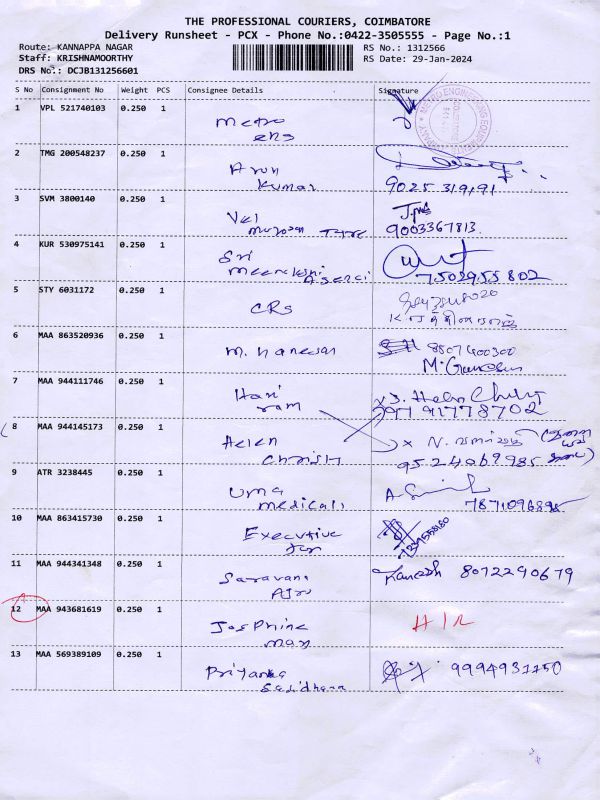 THE PROFESSIONAL COURIERS, COIMBATORE
Delivery Runsheet - PCX - Phone No.:0422-3505555 - Page No.:1
Route: KANNAPPA NAGAR RS No.: 1312566
Staff: KRISHNAMOORTHY RS Date: 29-Jan-2024
DRS No.: DCJB131256601
S No Consignment No Weight PCS Consignee Details Signature
1 VPL 521740103 0.250 1 Metro
Eng
2 TMG 200548237 0.250 1 Arun
kumar 9025 319191
3 SVM 3800140 0.250 1 Vel
murugan Tyre 9003367813
4 KUR 530975141 0.250 1 Sri
Meenakshi Agenci 7502955802
5 STY 6031172 0.250 1 CRs
6 MAA 863520936 0.250 1 M. Ganesan 8807400300
M. Ganesan
7 MAA 944111746 0.250 1 Hari
ram 9791778702
8 MAA 944145173 0.250 1 Helen
christy 9524069985
9 ATR 3238445 0.250 1 Uma
medicals 7871096895
10 MAA 863415730 0.250 1 Executive
11 MAA 944341348 0.250 1 Saravana 8072290679
12 MAA 943681619 0.250 1 Josphine
mary
13 MAA 569389109 0.250 1 Priyanka 9994931150
Sasidharan